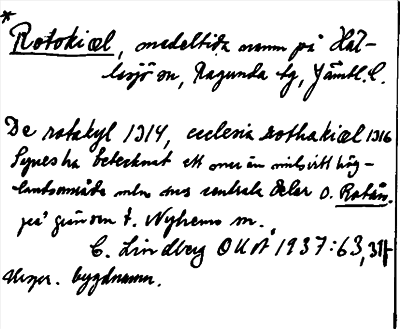 *
Rotokiæl, medeltida namn på Häl-
lesjö sn, Ragunda tg, Jämtl. l.
De rotakyl 1314, ecclesia rothakiæl 1316
Synes ha betecknat ett mer än milsvitt hög-
landsområde mln sns centrala delar o. Rotån
på gränsen t. Nyhems sn.
C. Lindberg OUÅ 1937: 63, 
bygdnamn.